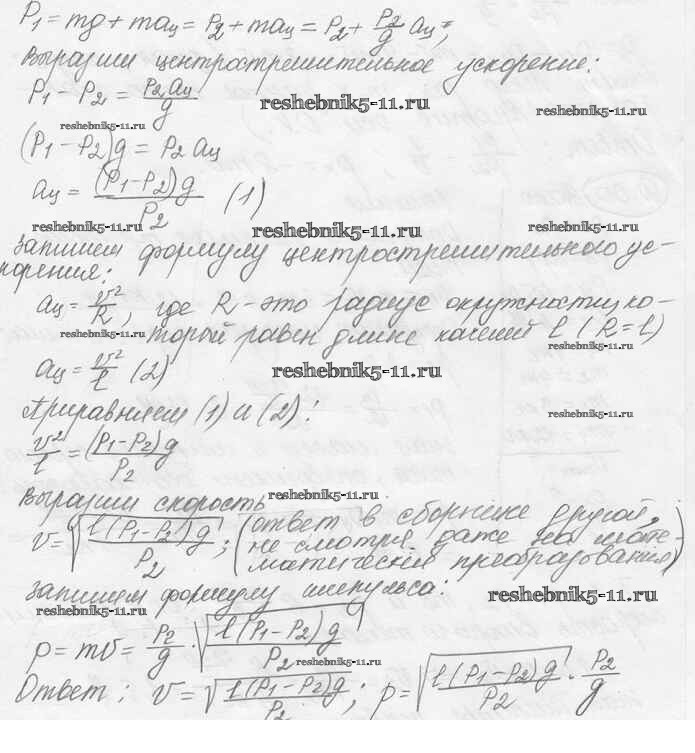 P₁ = mg + maц = P₂ + maц = P₂ + P₂/g aц;
Выразим центростремительное ускорение:
P₁ - P₂ = P₂aц/g
reshebnik5-11.ru
reshebnik5-11.ru
reshebnik5-11.ru
(P₁ - P₂)g = P₂ aц
aц = (P₁ - P₂)g/P₂ (1)
reshebnik5-11.ru
reshebnik5-11.ru
reshebnik5-11.ru
Запишем формулу центростремительного ус-
корения:
aц = v²/R, где R - это радиус окружности, ко-
торый равен длине качелей l (R = l)
reshebnik5-11.ru
reshebnik5-11.ru
aц = v²/l (2)
reshebnik5-11.ru
Приравняем (1) и (2):
reshebnik5-11.ru
v²/l = (P₁ - P₂)g/P₂
Выразим скорость
reshebnik5-11.ru
v = √(l(P₁ - P₂)g/P₂); (ответ в сборнике другой,
не смотря даже на мате-
матический преобразования)
Запишем формулу импульса:
reshebnik5-11.ru
reshebnik5-11.ru
p = mv = P₂/g · √(l(P₁ - P₂)g/P₂)
reshebnik5-11.ru
Ответ: v = √(l(P₁ - P₂)g/P₂); p = √(l(P₁ - P₂)g/P₂) · P₂/g